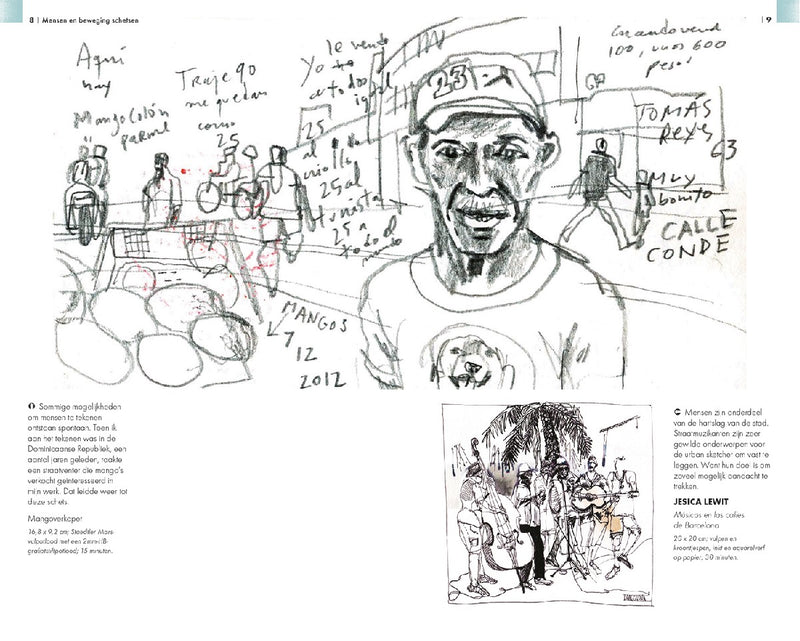 8 | Mensen en beweging schetsen
| 9
Aquí
hay
Mango Colón
Traje 90
me quedan
como
25
Yo
a todos
igual
25
al
25 al
turista
25 a
todo el
mundo
100, unos 600
pesos
TOMÁS
Reyes
63
Muy
bonito
CALLE
CONDE
23
MANGOS
7
12
2012
Sommige mogelijkheden
om mensen te tekenen
ontstaan spontaan. Toen ik
aan het tekenen was in de
Dominicaanse Republiek, een
aantal jaren geleden, raakte
een straatventer die mango's
verkocht geïnteresseerd in
mijn werk. Dat leidde weer tot
deze schets.
Mangoverkoper
16,8 x 9,2 cm; Staedtler Mars-
vulpotlood met een 2mm-HB-
grafietstiftpotlood; 15 minuten.
Mensen zijn onderdeel
van de hartslag van de stad.
Straatmuzikanten zijn zeer
gewilde onderwerpen voor
de urban sketcher om vast te
leggen. Want hun doel is om
zoveel mogelijk aandacht te
trekken.
JESICA LEWIT
Músicos en las calles
de Barcelona
20 x 20 cm; vulpen en
kroontjespen, inkt en aquarelverf
op papier, 30 minuten.